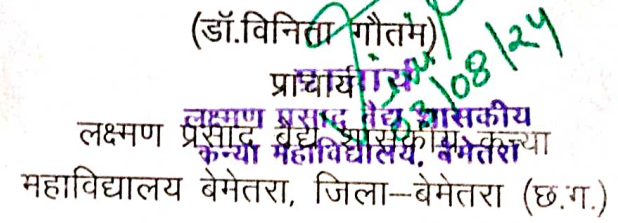 (डॉ.विनिता गौतम)
प्राचार्य
प्राचार्य
03/08/24
लक्ष्मण प्रसाद वैद्य शासकीय
कन्या महाविद्यालय, बेमेतरा
लक्ष्मण प्रसाद वैद्य शासकीय कन्या
महाविद्यालय बेमेतरा, जिला–बेमेतरा (छ.ग.)